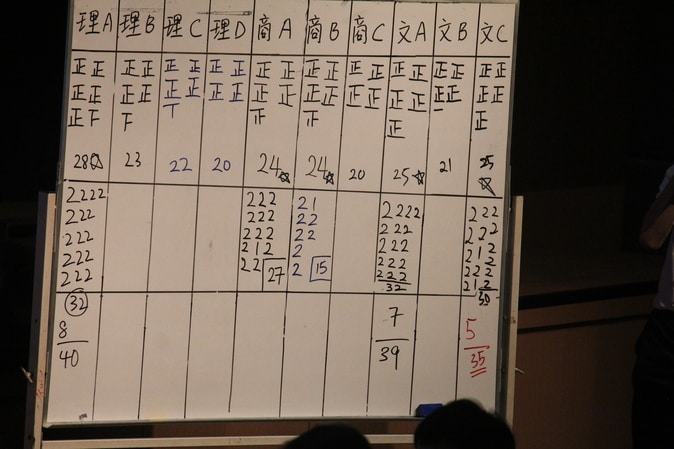 理A 理B 理C 理D 商A 商B 商C 文A 文B 文C
正正 正正 正正 正正 正正 正正 正正 正正 正正 正正
正正 正正 正正 正正 正正 正正 正正 正正 正正 正正
28 23 22 20 24 24 20 25 21 25
2222 222 21 2222 222
222 222 22 222 222
222 222 22 222 212
222 212 2 222 222
222 22 27 2 15 222 212
32 32 30
8 7 5
40 39 35